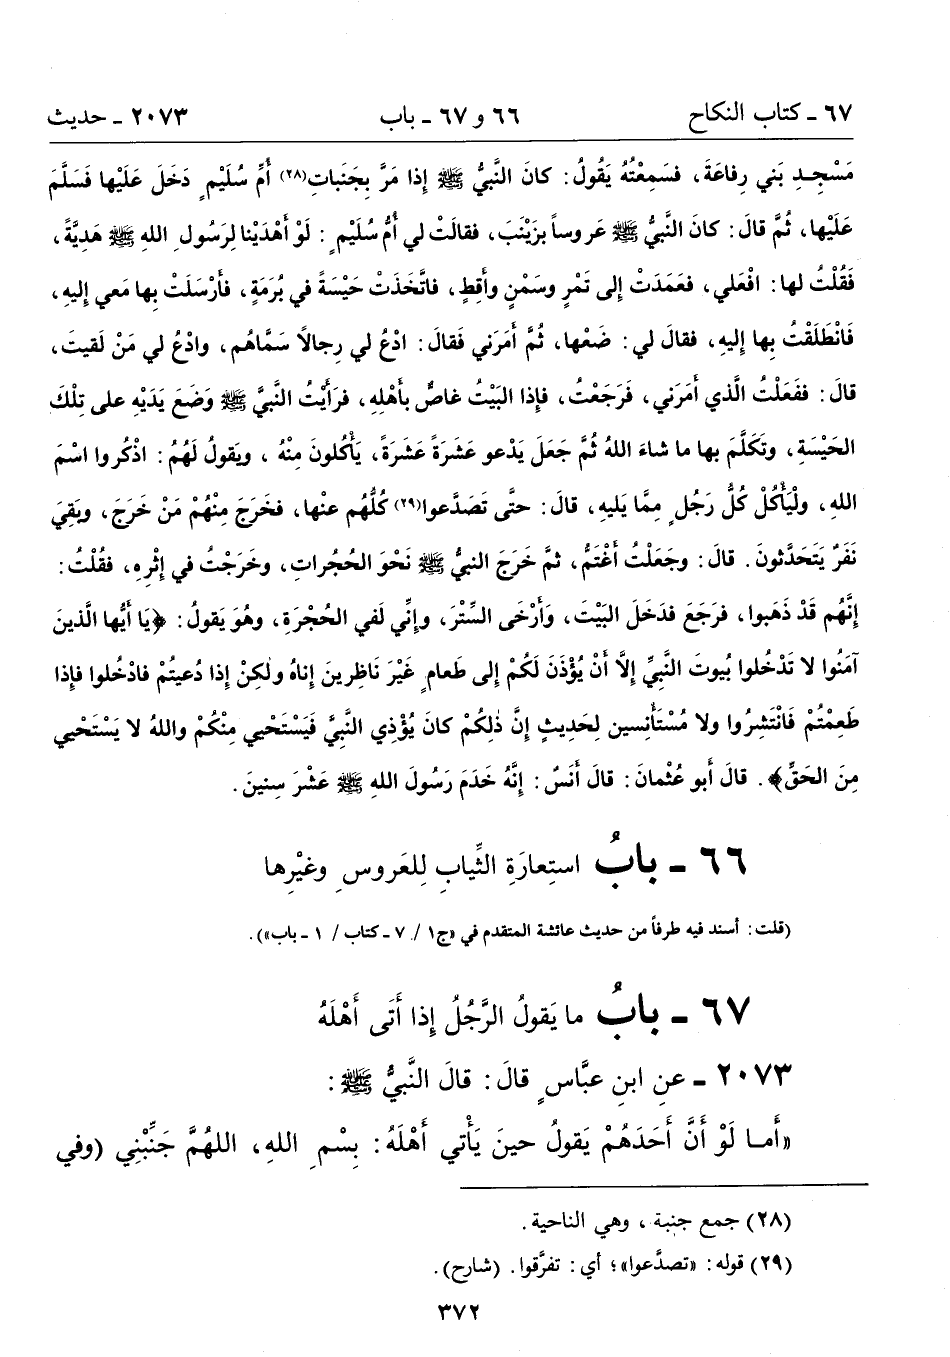 ٦٧ ـ كتاب النكاح ٦٦ و ٦٧ ـ باب ٢٠٧٣ ـ حديث
مَسْجِدِ بَني رِفاعَةَ، فَسَمِعْتُهُ يَقُولُ: كانَ النَّبيُّ ﷺ إذا مَرَّ بِجَنَباتِ(٢٨) أُمِّ سُلَيْمٍ دَخَلَ عَلَيْها فَسَلَّمَ
عَلَيْها، ثُمَّ قالَ: كانَ النَّبيُّ ﷺ عَروساً بزَيْنَبَ، فقالَتْ لي أُمُّ سُلَيْمٍ: لَوْ أَهْدَيْنا لرَسُولِ اللهِ ﷺ هَدِيَّةً،
فَقُلْتُ لها: افْعَلي، فَعَمَدَتْ إلى تَمْرٍ وسَمْنٍ وأَقِطٍ، فاتَّخَذَتْ حَيْسَةً في بُرَمَةٍ، فأَرْسَلَتْ بِها مَعي إليهِ،
فَانْطَلَقْتُ بِها إليهِ، فقالَ لي: ضَعْها، ثُمَّ أَمَرَني فَقالَ: ادْعُ لي رِجالاً سَمَّاهُم، وادْعُ لي مَنْ لَقيتَ،
قالَ: ففَعَلْتُ الَّذي أمَرَني، فَرَجَعْتُ، فإذا البَيْتُ غاصٌّ بأَهْلِهِ، فرَأَيْتُ النَّبيَّ ﷺ وَضَعَ يَدَيْهِ على تِلْكَ
الحَيْسَةِ، وتَكَلَّمَ بها ما شاءَ اللهُ ثُمَّ جَعَلَ يَدْعو عَشَرَةً عَشَرَةً، يَأْكُلونَ مِنْهُ، ويَقولُ لَهُمُ: اذْكُروا اسْمَ
اللهِ، ولْيَأْكُلْ كُلُّ رَجُلٍ مِمَّا يَليهِ، قالَ: حتَّى تَصَدَّعوا(٢٩) كُلُّهُم عنْها، فخَرَجَ مِنْهُمْ مَنْ خَرَجَ، وبَقِيَ
نَفَرٌ يَتَحَدَّثونَ. قالَ: وجَعَلْتُ أَغْتَمُّ، ثمَّ خَرَجَ النبيُّ ﷺ نَحْوَ الحُجُراتِ، وخَرَجْتُ في إثْرِهِ، فقُلْتُ:
إنَّهُم قَدْ ذَهَبوا، فرَجَعَ فدَخَلَ البَيْتَ، وأَرْخَى السِّتْرَ، وإنِّي لَفي الحُجْرَةِ، وهُوَ يَقولُ: ﴿يَا أيُّها الَّذينَ
آمَنُوا لا تَدْخُلوا بُيوتَ النَّبيِّ إلَّا أَنْ يُؤْذَنَ لَكُمْ إلى طَعامٍ غَيْرَ نَاظِرينَ إناهُ ولكِنْ إذا دُعيتُمْ فادْخُلوا فإذا
طَعِمْتُمْ فَانْتَشِرُوا ولا مُسْتَأْنِسين لِحَديثٍ إنَّ ذٰلِكُمْ كانَ يُؤْذي النَّبيَّ فَيَسْتَحْيي مِنْكُمْ واللهُ لا يَسْتَحْيي
مِنَ الحَقِّ﴾. قالَ أبو عُثْمانَ: قالَ أَنَسٌ: إنَّهُ خَدَمَ رَسُولَ اللهِ ﷺ عَشْرَ سِنينَ.
٦٦ ـ بابُ استِعارَةِ الثِّيابِ لِلعَروسِ وغيْرِها
(قلت: أسند فيه طرفاً من حديث عائشة المتقدم في «ج١ / ٧ ـ كتاب / ١ ـ باب»).
٦٧ ـ بابُ ما يَقولُ الرَّجُلُ إذا أَتَى أَهْلَهُ
٢٠٧٣ ـ عنِ ابنِ عبَّاسٍ قالَ: قالَ النَّبيُّ ﷺ:
«أَما لَوْ أَنَّ أَحَدَهُمْ يَقولُ حينَ يَأْتي أَهْلَهُ: بِسْمِ اللهِ، اللهُمَّ جَنِّبْنِي (وفي
(٢٨) جمع جنبة، وهي الناحية.
(٢٩) قوله: «تصدَّعوا»؛ أي: تفرَّقوا. (شارح).
٣٧٢